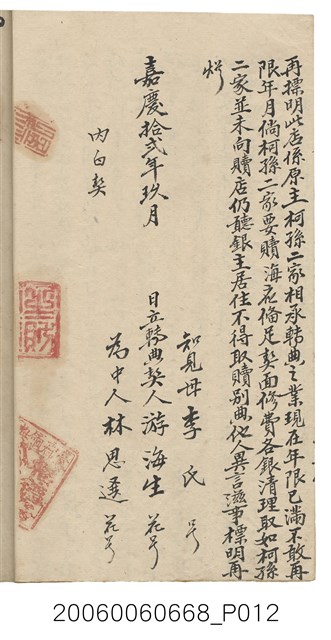 再標明此店係原主柯孫二家相承轉典之業現在年限已滿不敢再
限年月倘柯孫二家要贖海在倫足契面修費各銀清理取如柯孫
二家並未向贖店仍聽銀主居住不得取贖別典他人異言滋事標明再
炤
嘉慶拾弍年玖月
日立轉典契人游海生 花号
知見母李氏 号
為中人林思遠 花号
內白契
20060060668_P012